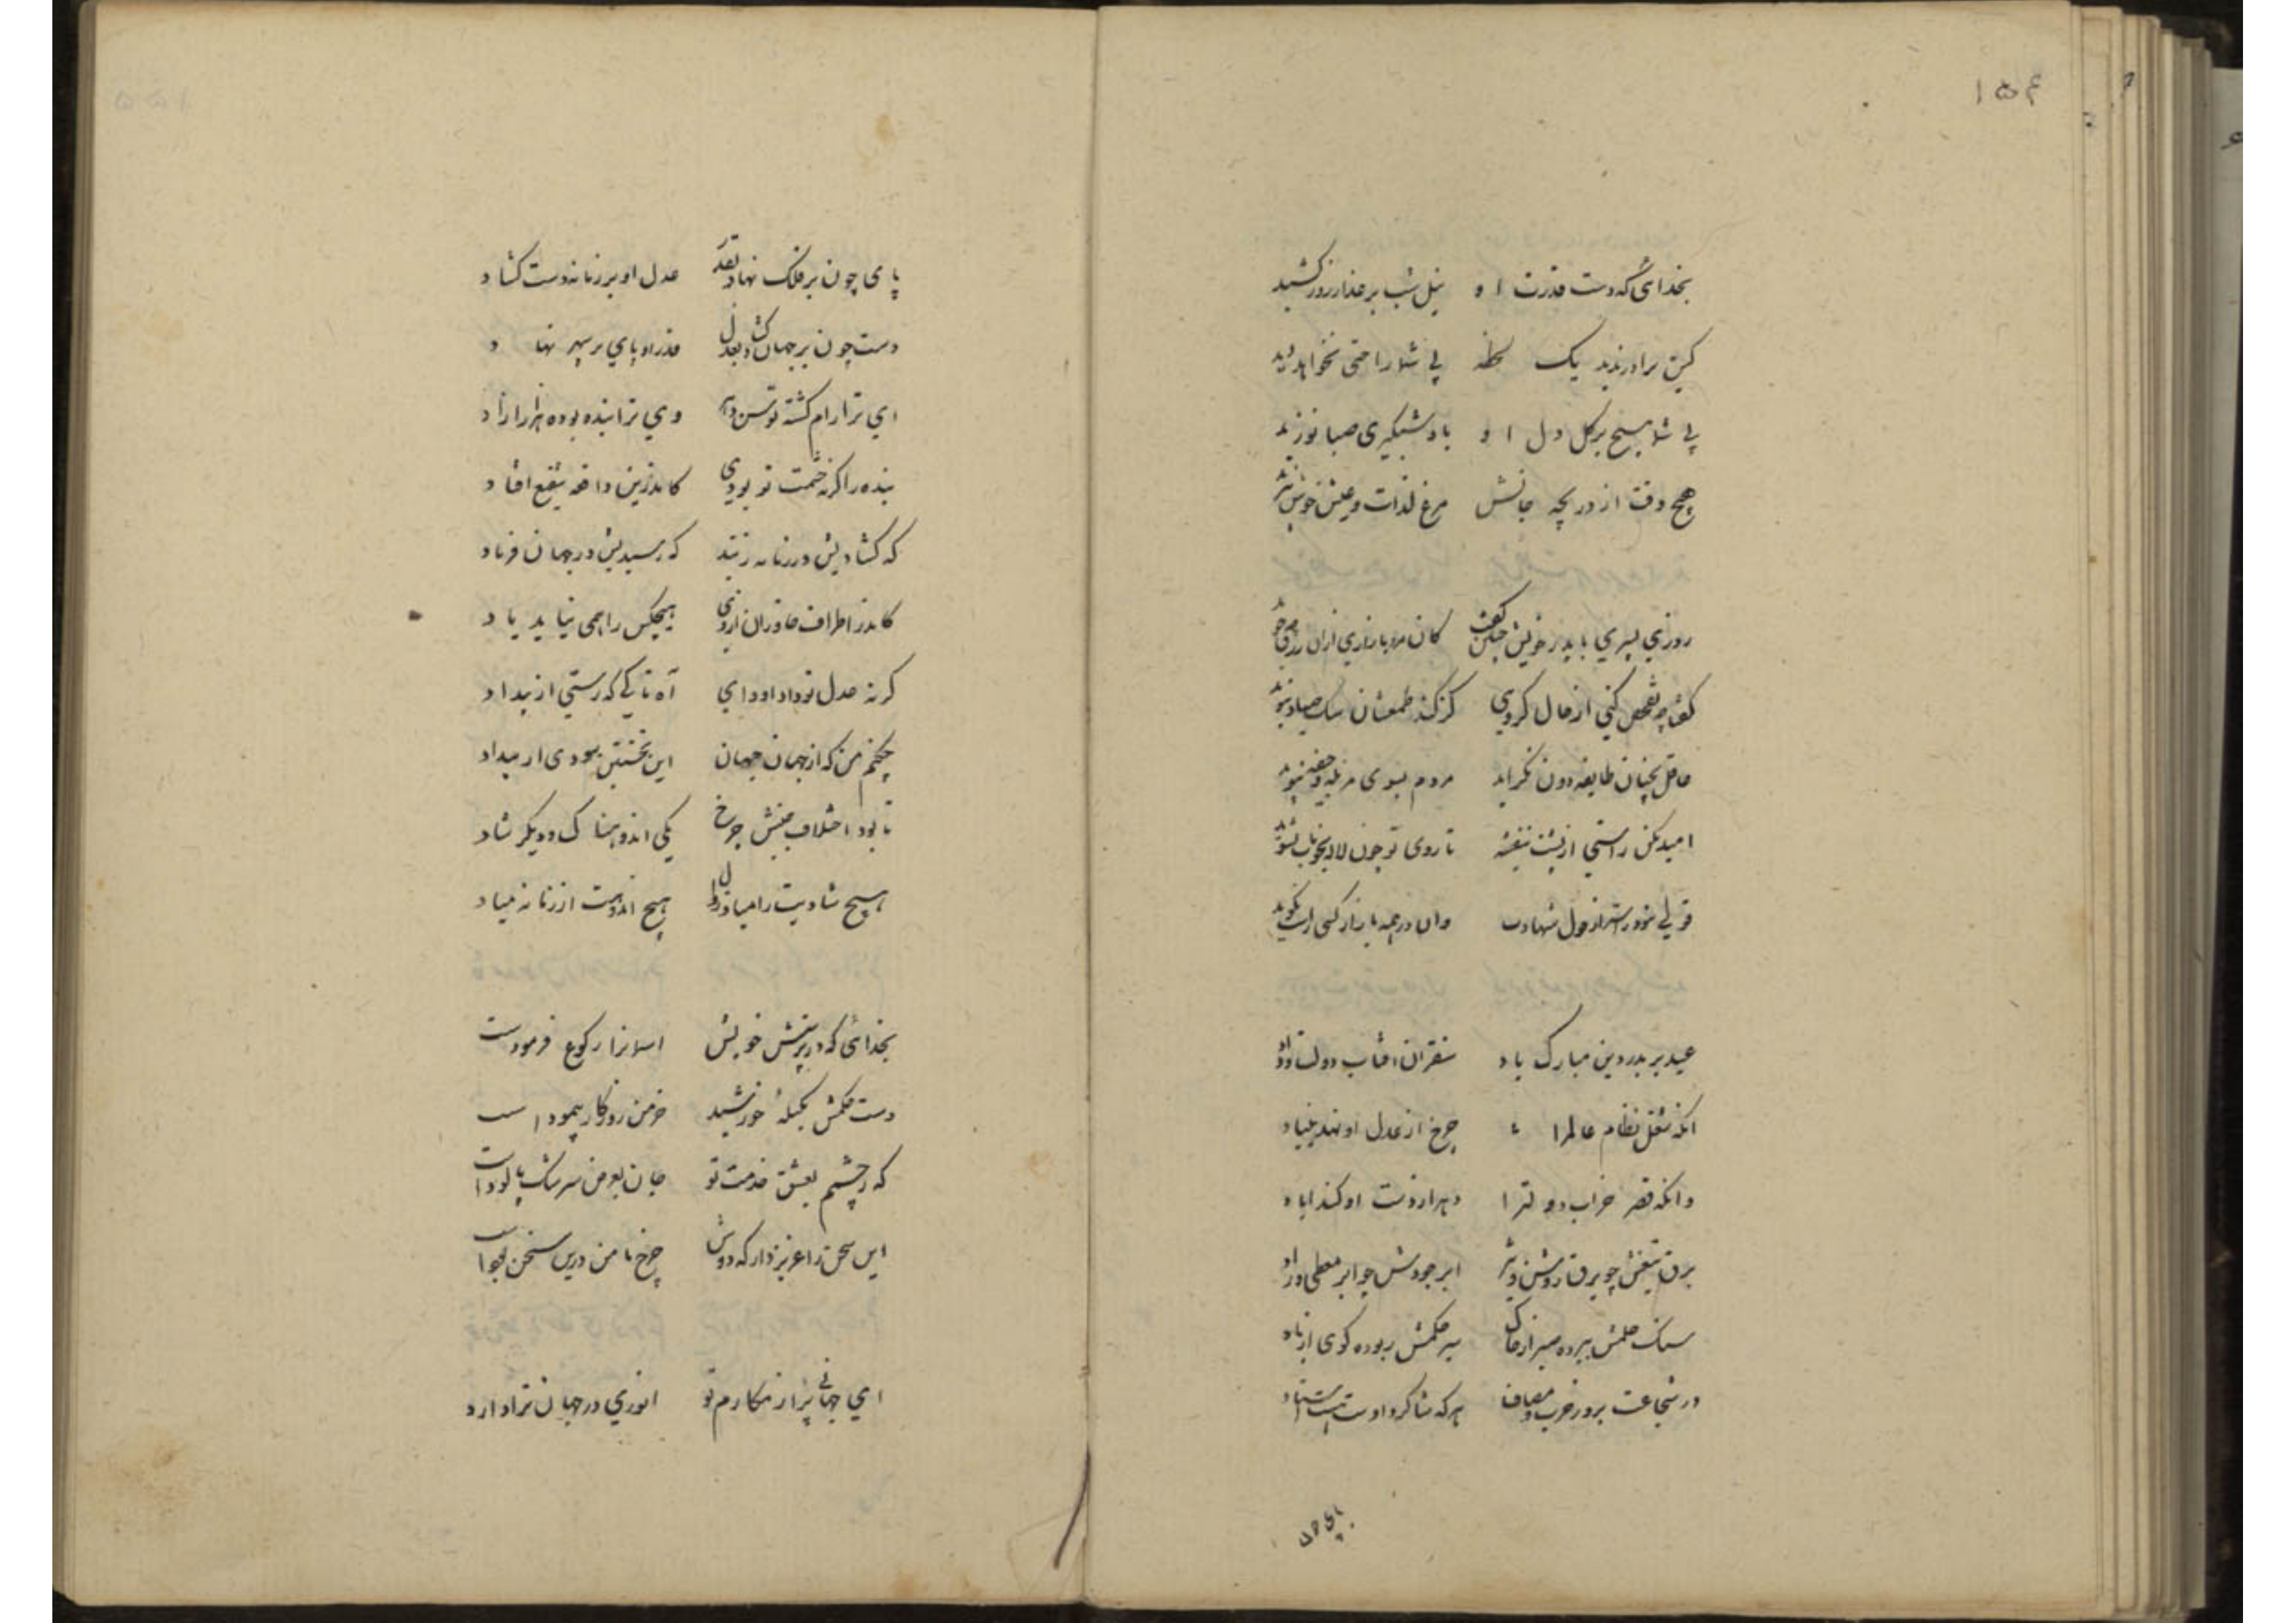 ۱۵۴
بخدائی که دست قدرت او نیل شب بر عذار روز کشید
کین برادر ندید یک لحظه بی شما راحتی نخواهد دید
بی شما هیچ بر کل دل او باد شبکیری صبا نوزید
هیچ وقت از دریچه جانش مرغ لذات و عیش خوش
روزی پسری با پدر خویش چنین گفت کان مردک بازاری ازان
کفتا چه تفحص کنی از حال کروهی کز کند طمعشان سک صیاد
عاقل بچنان طایفه دون نکراید مردم بسوی مزبله و جیفه نپوید
امید مکن راستی از پشت بنفشه تا روی تو چون لاله بخوناب نشوید
قولی نزور است از قول شهادت وان در همه بازار کسی راست نکوید
عید بر بدر دین مبارک باد سنقر ان افتاب دولت و داد
انکه شغل نظام عالم را چرخ از عدل او نهد بنیاد
وانکه قصر خراب دولترا دهر از دست او کند اباد
برق تیغش چو برق روشن و تیز ابر جودش چو ابر معطی و راد
سنک حلمش ببرده صبر از خاک سیر حکمش ربوده کوی از باد
در شجاعت بروز حرب و مصاف هرکه شاکرد اوست هست استاد
پای چون
پای چون بر فلک نهاد بقدر عدل او بر زمانه دست کشاد
دست چون بر جهان کشاد بعدل قدر او پای بر سپهر نهاد
ای ترا رام کشته توسن دهر وی ترا بنده بوده هر ازاد
بنده را کرنه حشمت تو بودی کاندرین واقعه شفیع افتاد
که کشادیش در زمانه ز بند که رسیدیش در جهان فریاد
کاندر اطراف خاوران از وی هیچکس را همی نیاید یاد
کرنه عدل تو داد او دادی آه تا کی که رستی از بیداد
چکنم من که از جهان جهان این نخستین نبودی از بیداد
تا بود اختلاف جنبش چرخ یکی اندوهناک و دیکر شاد
هیچ شادیت را مباد زوال هیچ اندوهت از زمانه مباد
بخدائی که در پرستش خویش اسمانرا رکوع فرمودست
دست حکمش بکیلهٔ خورشید خرمن روزکار پیموداست
که ز چشمم بعشق خدمت تو جان بعوض سرشک پالوداست
این سخن را عزیز دار که دوش چرخ با من درین سخن بوداست
ای جهانی پر از مکارم تو انوری در جهان ترا دارد